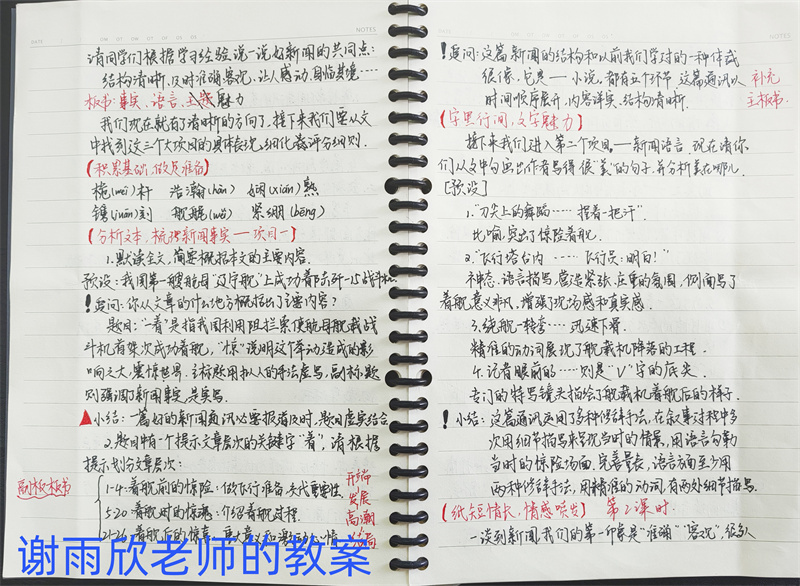 DATE
NOTES
请同学们根据学习经验说一说好新闻的共同点:
结构清晰,及时准确客观,让人感动,身临其境……
板书:事实、语言、主题魅力
我们现在就有了清晰的方向了,接下来我们要从文
中找到这三个大项目的具体表现,细化最评分细则.
(积累基础,做足准备)
桅(wéi)杆 浩瀚(hàn) 娴(xián)熟
镌(juān)刻 舰艉(wěi) 紧绷(bēng)
(分析文本,梳理新闻事实——项目一)
1.默读全文,简要概括本文的主要内容.
预设:我国第一艘航母“辽宁舰”上成功着陆歼-15战斗机.
!追问:你从文章的什么地方概括出了主要内容?
题目:“一着”是指我国利用阻拦索使航母舰载战
斗机首架次成功着舰,“惊”说明这个举动造成的影
响之大,震惊世界.主标题用拟人的手法虚写,副标题
则强调了新闻事实,是实写.
小结:一篇好的新闻通讯必要报道及时,题目虚实结合
2.题目中有一个提示文章层次的关键字“着”,请根据
提示划分文章层次:
副板板书
1-4:着舰前的惊险:做飞行准备,交代重要性. 开端
5-20:着舰时的惊魂:介绍着舰过程. 发展
高潮
21-26:着舰后的惊喜:重大意义和激动心情 结局
谢雨欣老师的教案
NOTES
!追问:这篇新闻的结构和以前我们学过的一种体裁
很像,它是——小说,都有五个环节,这篇通讯以 补充
时间顺序展开,内容详实,结构清晰. 主板书
(字里行间,文字魅力)
接下来我们进入第二个项目——新闻语言,现在请你
们从文中勾画出作者写得很“美”的句子,并分析美在哪儿.
[预设]
1.“刀尖上的舞蹈……捏着一把汗”.
比喻,突出了惊险着舰.
2.“飞行塔台内……飞行员:明白!”
神态、语言描写,营造紧张、庄重的氛围,侧面写了
着舰意义非凡,增强了现场感和真实感.
3.绕舰一转弯……迅速下滑.
精准的动词展现了舰载机降落的工程.
4.记者眼前的……则是“V”字的底尖
专门的特写镜头描绘了舰载机着舰后的样子.
!小结:这篇通讯运用了多种修辞手法,在叙事过程中多
次用细节描写来呈现当时的情景,用语言勾勒
当时的惊险场面,完善量表,语言方面至少用
两种修辞手法,用精准的动词,有两处细节描写.
(纸短情长,情感喷发) 第2课时
一谈到新闻,我们的第一印象是“准确”“客观”,很多人